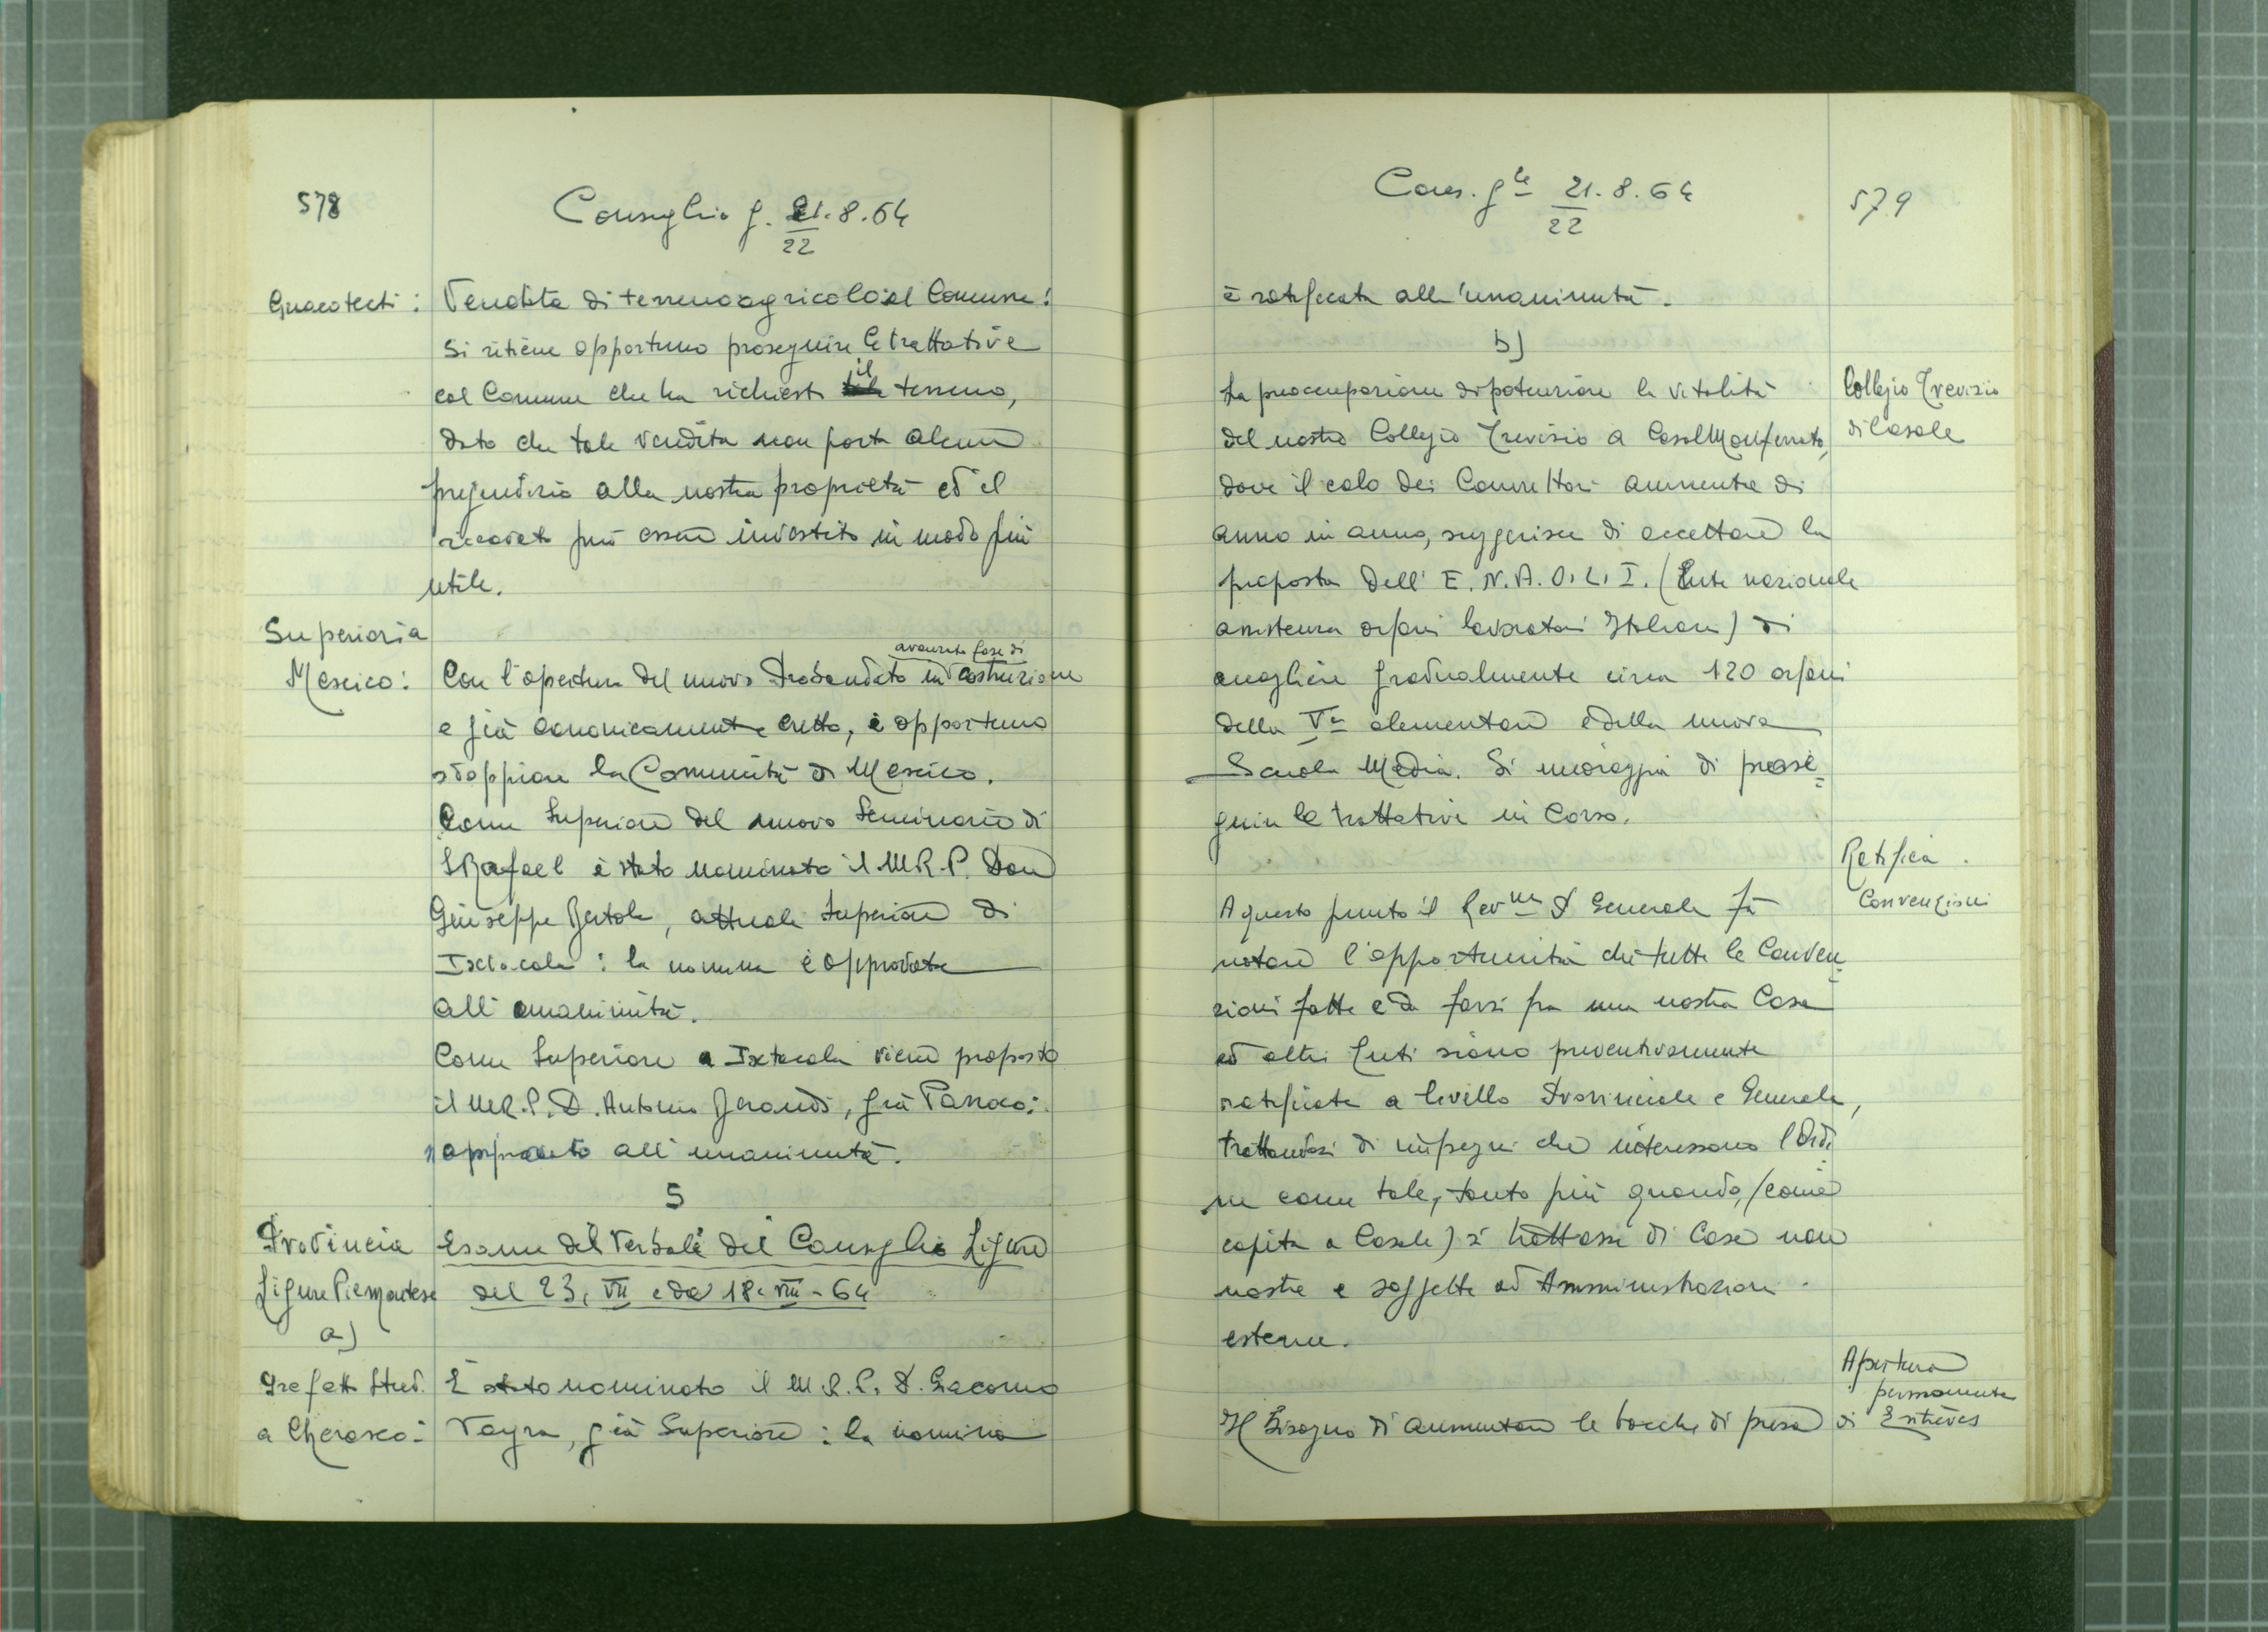 578
Consiglio g. 21.8.64
22
Guacotecti: Vendita di terreno agricolo al Comune:
si ritiene opportuno proseguire le trattative
col Comune che ha richiesto il terreno,
dato che tale vendita non porta alcun
pregiudizio alla nostra proprietà ed il
ricavato può essere investito in modo più
utile.
Superiori a
Messico: Con l'apertura del nuovo Probandato in avanzata fase di costruzione
e già canonicamente eretto, è opportuno
sdoppiare la Comunità di Messico.
Come Superiore del nuovo Seminario di
S Rafael è stato nominato il M.R.P. Don
Giuseppe Bertola, attuale Superiore di
Ixtacala: la nomina è approvata
all'unanimità.
Come Superiore a Ixtacala viene proposto
il M.R.P. D. Antonio Gerardi, già Parroco:
approvato all'unanimità.
5
Provincia Esame del Verbale del Consiglio Ligure
Ligure Piemontese del 23. VII e del 18. VIII - 64
a)
Prefetto Stud. È stato nominato il M.R.P. D. Giacomo
a Cherasco: Vayra, già Superiore: la nomina
Cons. gle 21.8.64
22
579
è ratificata all'unanimità.
b)
La preoccupazione di potenziare la vitalità Collegio Trevisio
del nostro Collegio Trevisio a Casal Monferrato, di Casale
dove il calo dei Convittori aumenta di
anno in anno, suggerisce di accettare la
proposta dell'E.N.A.O.L.I. (Ente nazionale
assistenza orfani lavoratori Italiani) di
accogliere gradualmente circa 120 orfani
della Va elementare e della nuova
Scuola Media. Si incoraggia di prose=
guire le trattative in corso.
Ratifica
Convenzioni
A questo punto il Rev.mo P. Generale fa
notare l'opportunità che tutte le Conven=
zioni fatte e da farsi fra una nostra Casa
ed altri Enti siano preventivamente
ratificate a livello Provinciale e Generale,
trattandosi di impegni che interessano l'Ordi
ne come tale, tanto più quando, (come
capita a Casale) si trattasse di Case non
nostre e soggette ad Amministrazioni
esterne.
Apertura
permanente
Il bisogno di aumentare le bocche di presa di Entrèves